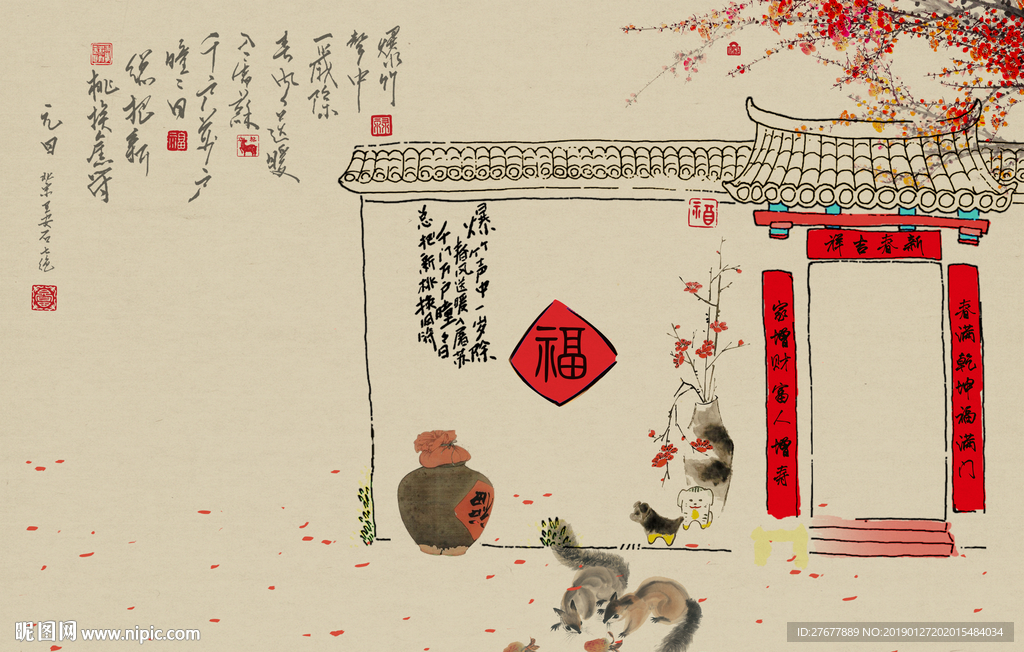 爆竹
声中
一歲除
春风送暖
入屠蘇
千门万户
曈々日
总把新
桃换舊符
元日
北宋王安石七绝
爆竹声中一岁除
春风送暖入屠苏
千门万户曈々日
总把新桃换旧符
福
福
新春吉祥
春满乾坤福满门
家增财富人增寿
酒
昵图网 www.nipic.com
ID:27677889 NO:20190127202015484034